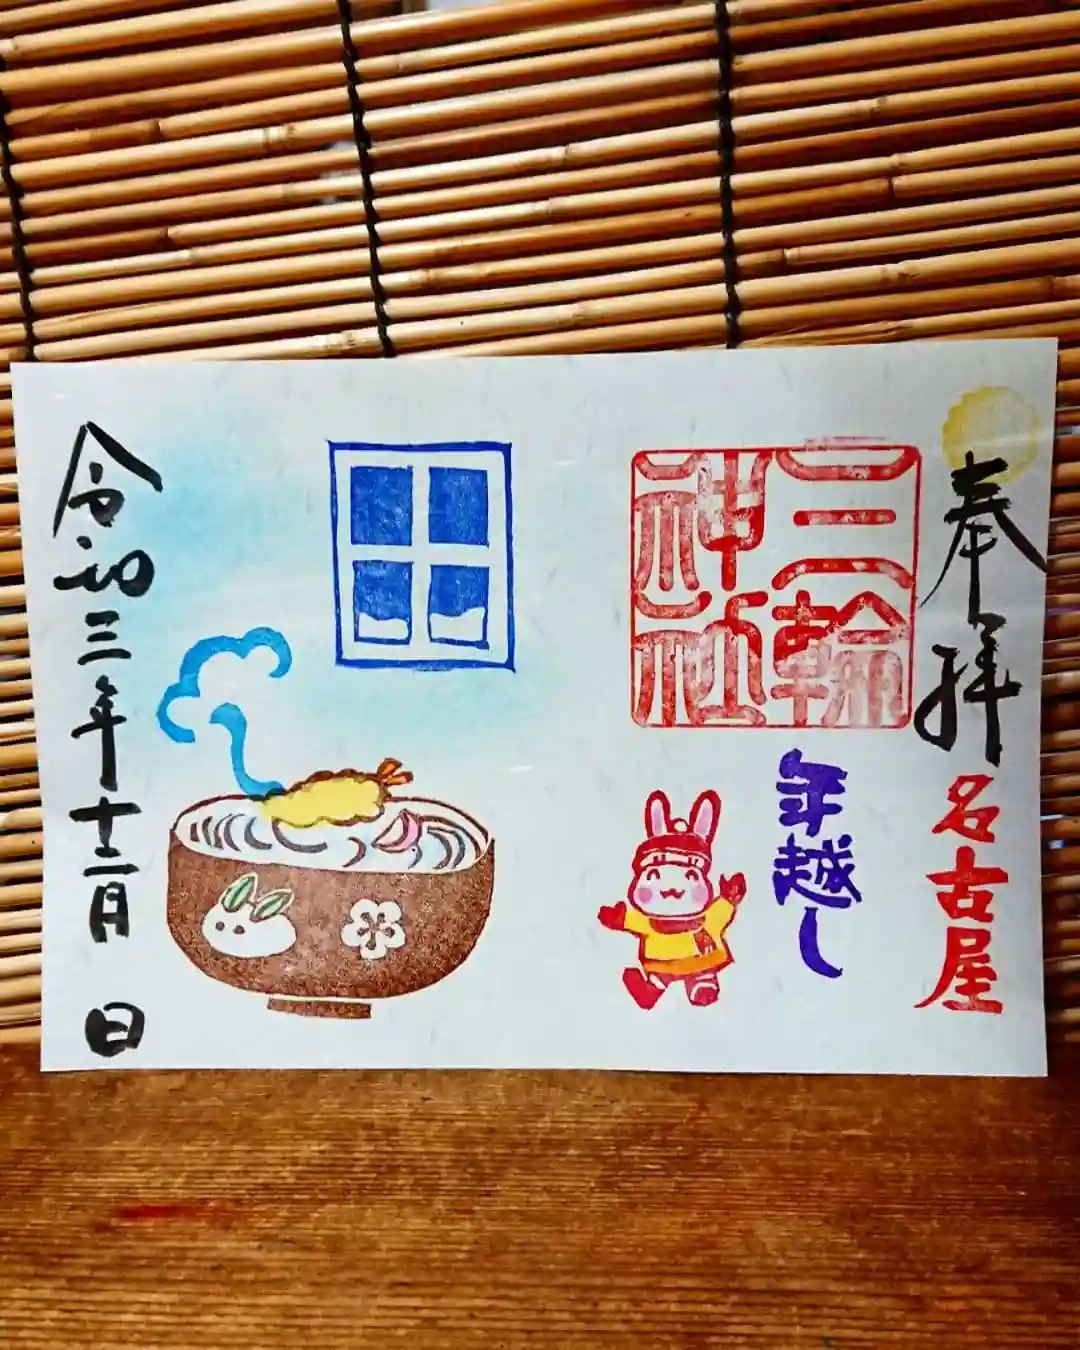 奉拝
名古屋
三輪
神社
年越し
令和三年十二月 日